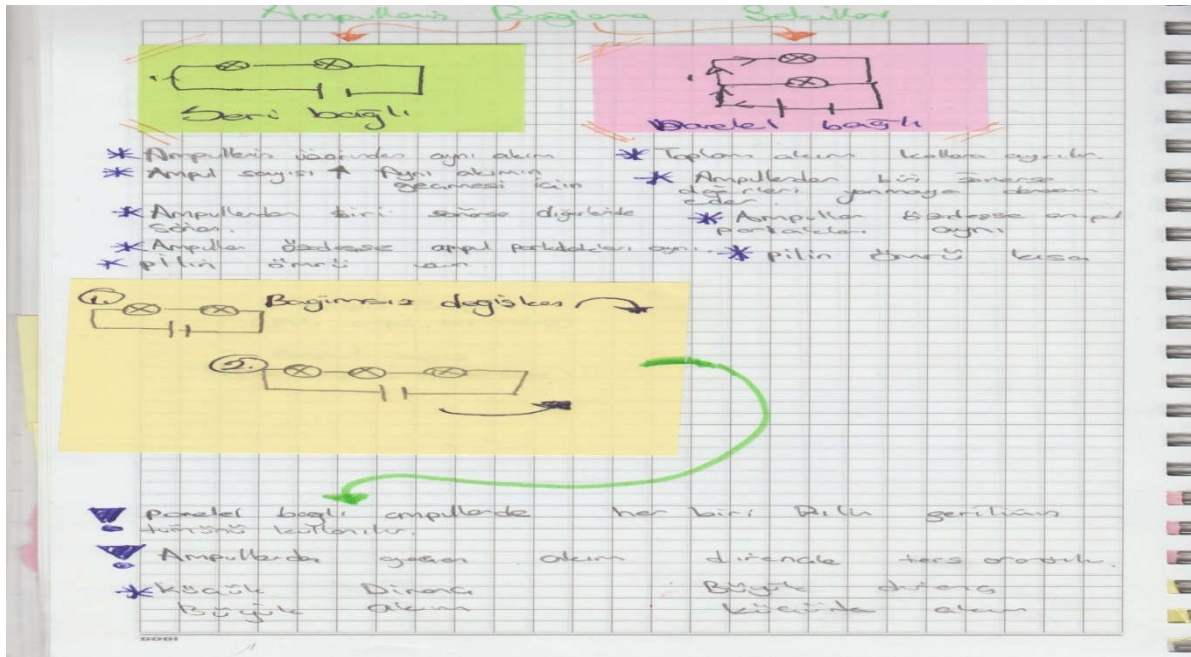 Ampullerin Bağlama Şekilleri
Seri bağlı
Paralel bağlı
* Ampullerin üzerinden aynı akım
* Ampul sayısı ↑ Aynı akımın
geçmesi için
* Ampullerden biri sönerse diğerleride
söner.
* Ampuller özdeşse ampul parlaklıkları aynı.
* pilin ömrü uzun
* Toplam akım kollara ayrılır.
* Ampullerden biri sönerse
diğerleri yanmaya devam
eder.
* Ampuller özdeşse ampul
parlaklıkları aynı
* pilin ömrü kısa
1. Bağımsız değişken
2.
! Paralel bağlı ampullerde her biri Pilin gerilimin
tümünü kullanılır.
! Ampullerde geçen akım dirençle ters orantılı.
* Küçük Direnç Büyük direnç
Büyük akım küçük akım